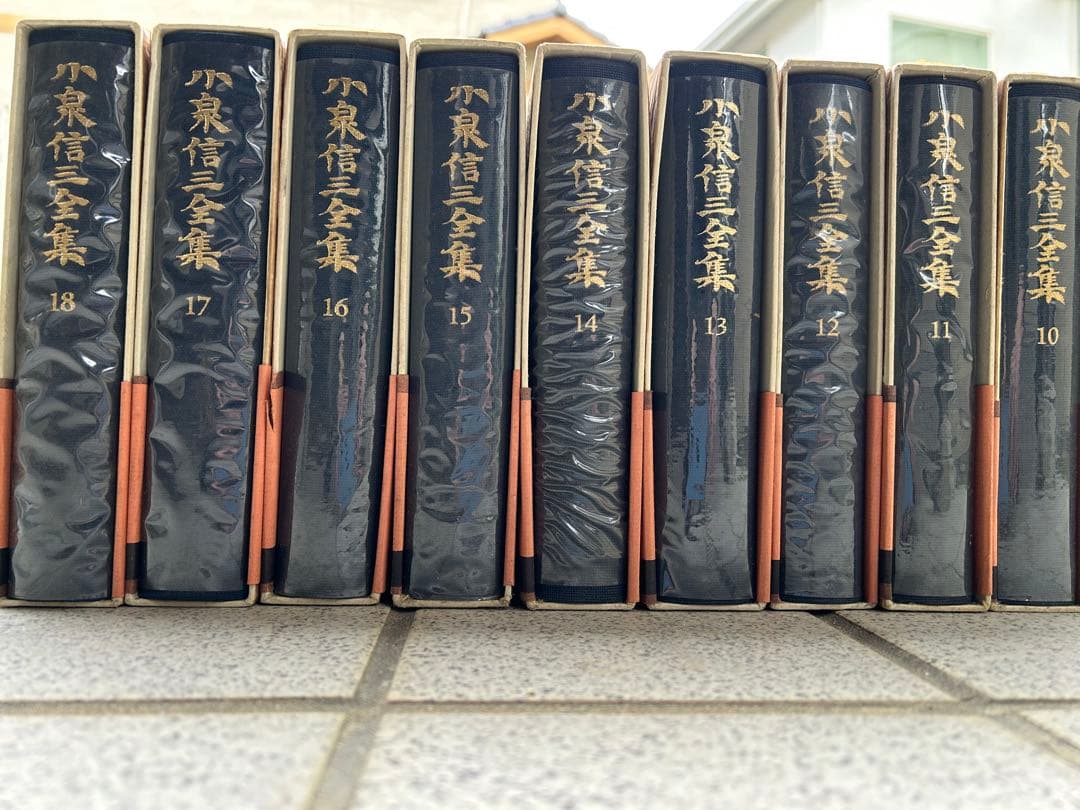 小泉信三全集
18
小泉信三全集
17
小泉信三全集
16
小泉信三全集
15
小泉信三全集
14
小泉信三全集
13
小泉信三全集
12
小泉信三全集
11
小泉信三全集
10